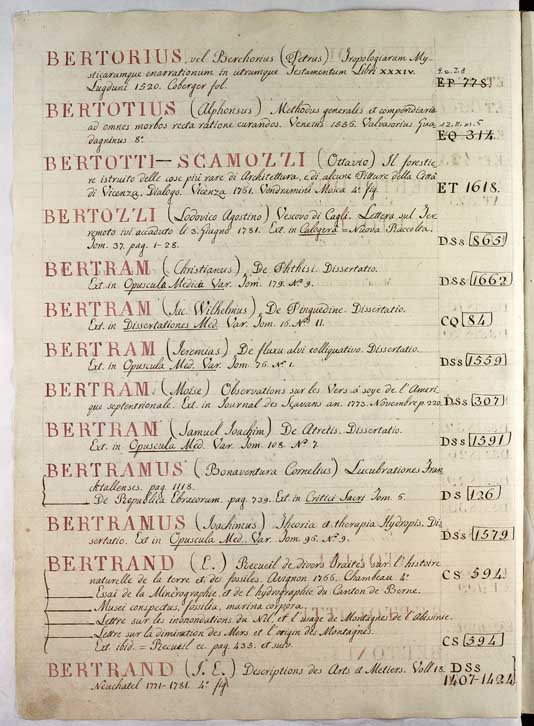 BERTORIUS, vel Berchorius (Petrus) Tropologiarum My-
sticarumque enarrationum in utrumque Testamentum Libri XXXIV.
Lugduni 1520. Coberger fol.
EP 778
BERTOTIUS (Alphonsus) Methodus generalis et compendiaria
ad omnes morbos recta ratione curandos. Venetiis 1556. Valvasorius Gua
dagninus 8°
EQ 314
BERTOTTI-SCAMOZZI (Ottavio) Il forestie
re istruito delle cose più rare di Architettura, e di alcune Pitture della Città
di Vicenza, Dialogo. Vicenza 1761. Vendramini Mosca 4° fig.
ET 1618.
BERTOZZI (Lodovico Agostino) Vescovo di Cagli. Lettera sul Ter-
remoto ivi accaduto le 3. Giugno 1781. Ext. in Calogerà = Nuova Raccolta.
Tom. 37. pag. 1-28.
DSs 865
BERTRAM (Christianus) De Phthisi. Dissertatio.
Ext. in Opuscula Medica Var. Tom. 179. N° 9.
DSs 1662
BERTRAM (Jac. Wilhelmus) De Pinguedine. Dissertatio.
Ext. in Dissertationes Med. Var. Tom. 16. N° 11.
CQ 84
BERTRAM (Jeremias) De fluxu alvi colliquativo. Dissertatio.
Ext. in Opuscula Med. Var. Tom. 76. N° 1.
DSs 1559
BERTRAM (Moïse) Observations sur les Vers à soye de l'Ameri
que septentrionale. Ext. in Journal des Sçavans an. 1773. Novembre p. 220.
DSs 307
BERTRAM (Samuel Joachim) De Atretis. Dissertatio.
Ext. in Opuscula Med. Var. Tom. 108. N° 7.
DSs 1591
BERTRAMUS (Bonaventura Cornelius) Lucubrationes Fran
cktallenses. pag. 1118.
De Republica Ebraeorum. pag. 739. Ext. in Critici Sacri Tom. 6.
DS 126
BERTRAMUS (Joachimus) Theoria et therapia Hydropis. Dis
sertatio. Ext in Opuscula Med. Var. Tom. 96. N° 9.
DSs 1579
BERTRAND (E.) Recueil de divers Traités sur l'histoire
naturelle de la terre et des fossiles. Avignon 1766. Chambeau 4°
CS 594
Essai de la Minerographie, et de l'hydrographie du Canton de Berne.
Musei conspectus, fossilia, marina corpora.
Lettre sur les inondations du Nil, et l'usage de Montagnes de l'Abissinie.
Lettre sur la diminution des Mers et l'origin des Montagnes.
Ext. ibid. = Recueil ec. pag. 433. et suiv.
CS 394
BERTRAND (J. E.) Descriptions des Arts et Metiers. Voll 18.
Neuchatel 1771-1781. 4° fig.
DSS
1407-1424